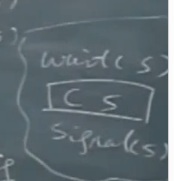 wait(s)
CS
Signal(s)